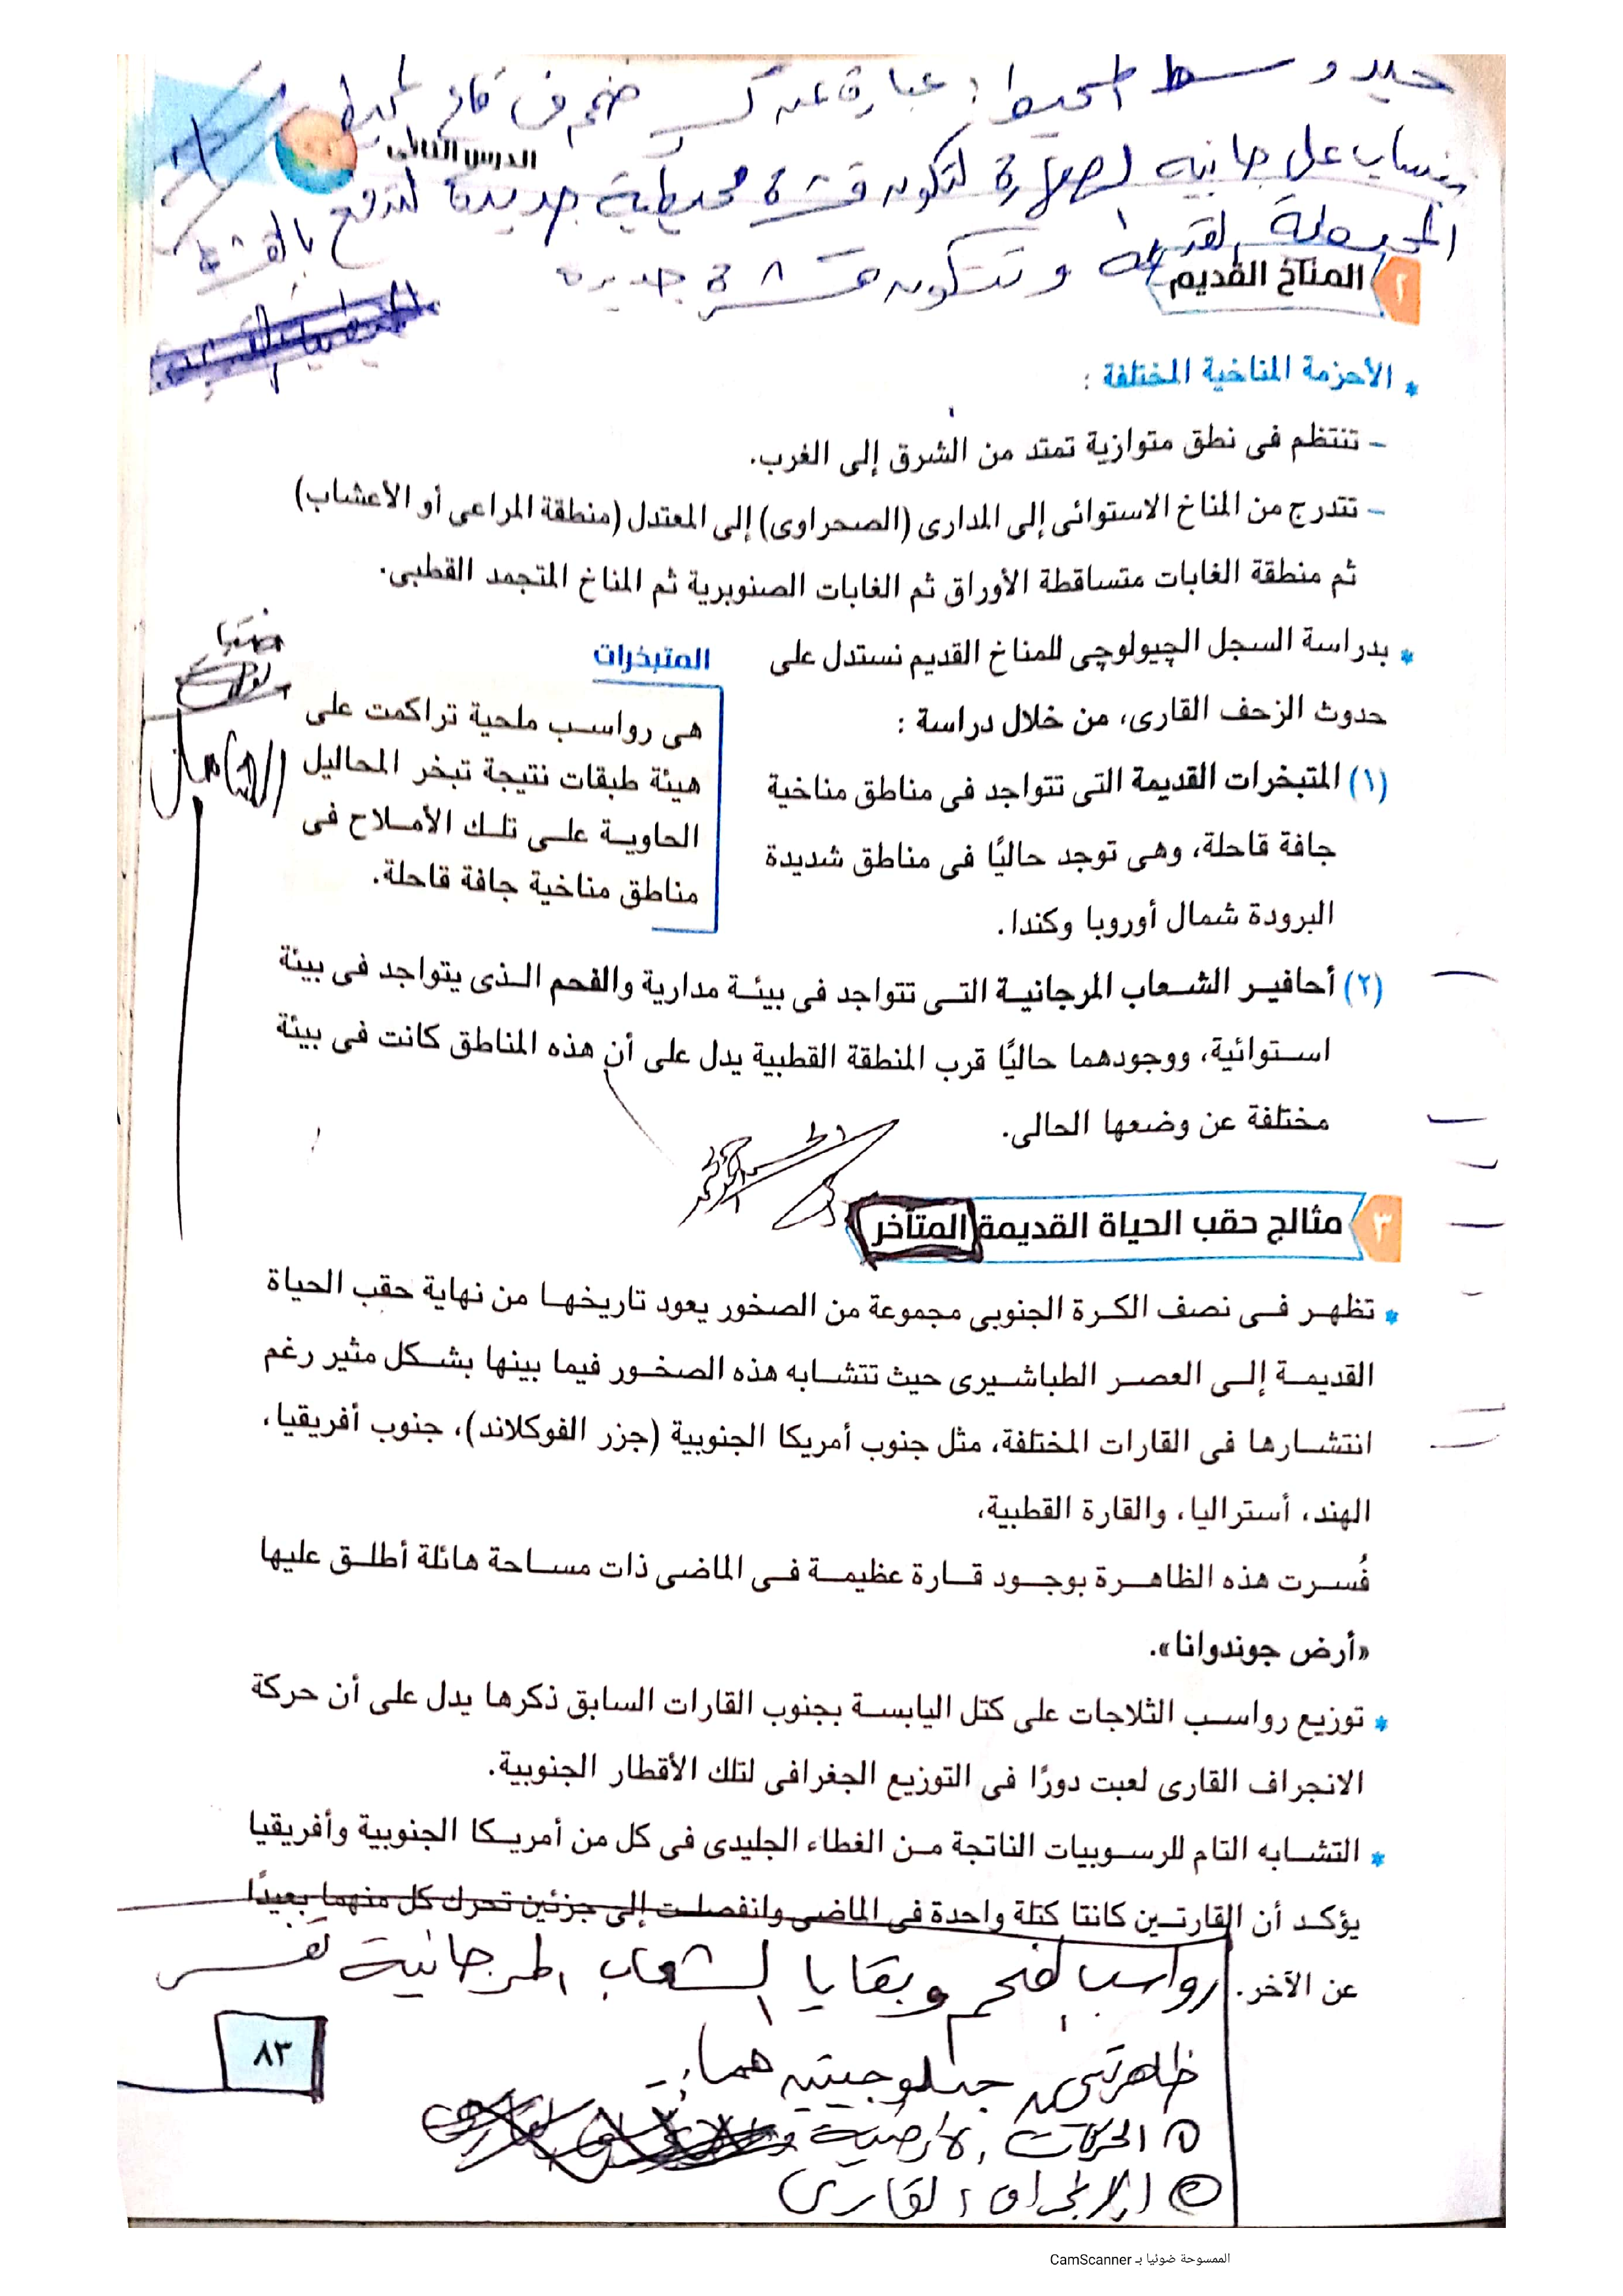 حيد وسط المحيط : عبارة عن كسر ضخم فى قاع المحيط
الدرس الثانى
ينساب على جانبيه الصهارة لتكون قشرة محيطية جديدة لتدفع بالقشرة
المحيطية القديمة وتتكون قشرة جديدة
٢ المناخ القديم
* الأحزمة المناخية المختلفة :
– تنتظم فى نطق متوازية تمتد من الشرق إلى الغرب.
– تتدرج من المناخ الاستوائى إلى المدارى (الصحراوى) إلى المعتدل (منطقة المراعى أو الأعشاب)
ثم منطقة الغابات متساقطة الأوراق ثم الغابات الصنوبرية ثم المناخ المتجمد القطبى.
* بدراسة السجل الچيولوچى للمناخ القديم نستدل على
حدوث الزحف القارى، من خلال دراسة :
(١) المتبخرات القديمة التى تتواجد فى مناطق مناخية
جافة قاحلة، وهى توجد حاليًا فى مناطق شديدة
البرودة شمال أوروبا وكندا.
المتبخرات
هى رواسب ملحية تراكمت على
هيئة طبقات نتيجة تبخر المحاليل
الحاوية على تلك الأملاح فى
مناطق مناخية جافة قاحلة.
(٢) أحافير الشعاب المرجانية التى تتواجد فى بيئة مدارية والفحم الذى يتواجد فى بيئة
استوائية، ووجودهما حاليًا قرب المنطقة القطبية يدل على أن هذه المناطق كانت فى بيئة
مختلفة عن وضعها الحالى.
٣ مثالج حقب الحياة القديمة المتأخر
* تظهر فى نصف الكرة الجنوبى مجموعة من الصخور يعود تاريخها من نهاية حقب الحياة
القديمة إلى العصر الطباشيرى حيث تتشابه هذه الصخور فيما بينها بشكل مثير رغم
انتشارها فى القارات المختلفة، مثل جنوب أمريكا الجنوبية (جزر الفوكلاند)، جنوب أفريقيا،
الهند، أستراليا، والقارة القطبية،
فُسرت هذه الظاهرة بوجود قارة عظيمة فى الماضى ذات مساحة هائلة أطلق عليها
«أرض جوندوانا».
* توزيع رواسب الثلاجات على كتل اليابسة بجنوب القارات السابق ذكرها يدل على أن حركة
الانجراف القارى لعبت دورًا فى التوزيع الجغرافى لتلك الأقطار الجنوبية.
* التشابه التام للرسوبيات الناتجة من الغطاء الجليدى فى كل من أمريكا الجنوبية وأفريقيا
يؤكد أن القارتين كانتا كتلة واحدة فى الماضى وانفصلت إلى جزئين تحرك كل منهما بعيدًا
عن الآخر.
رواسب الفحم وبقايا الشعاب المرجانية تفسر
ظاهرتين جيولوجيتين هما :
١ الحركات الأرضية
٢ الانجراف القارى
٨٣
الممسوحة ضوئيا بـ CamScanner